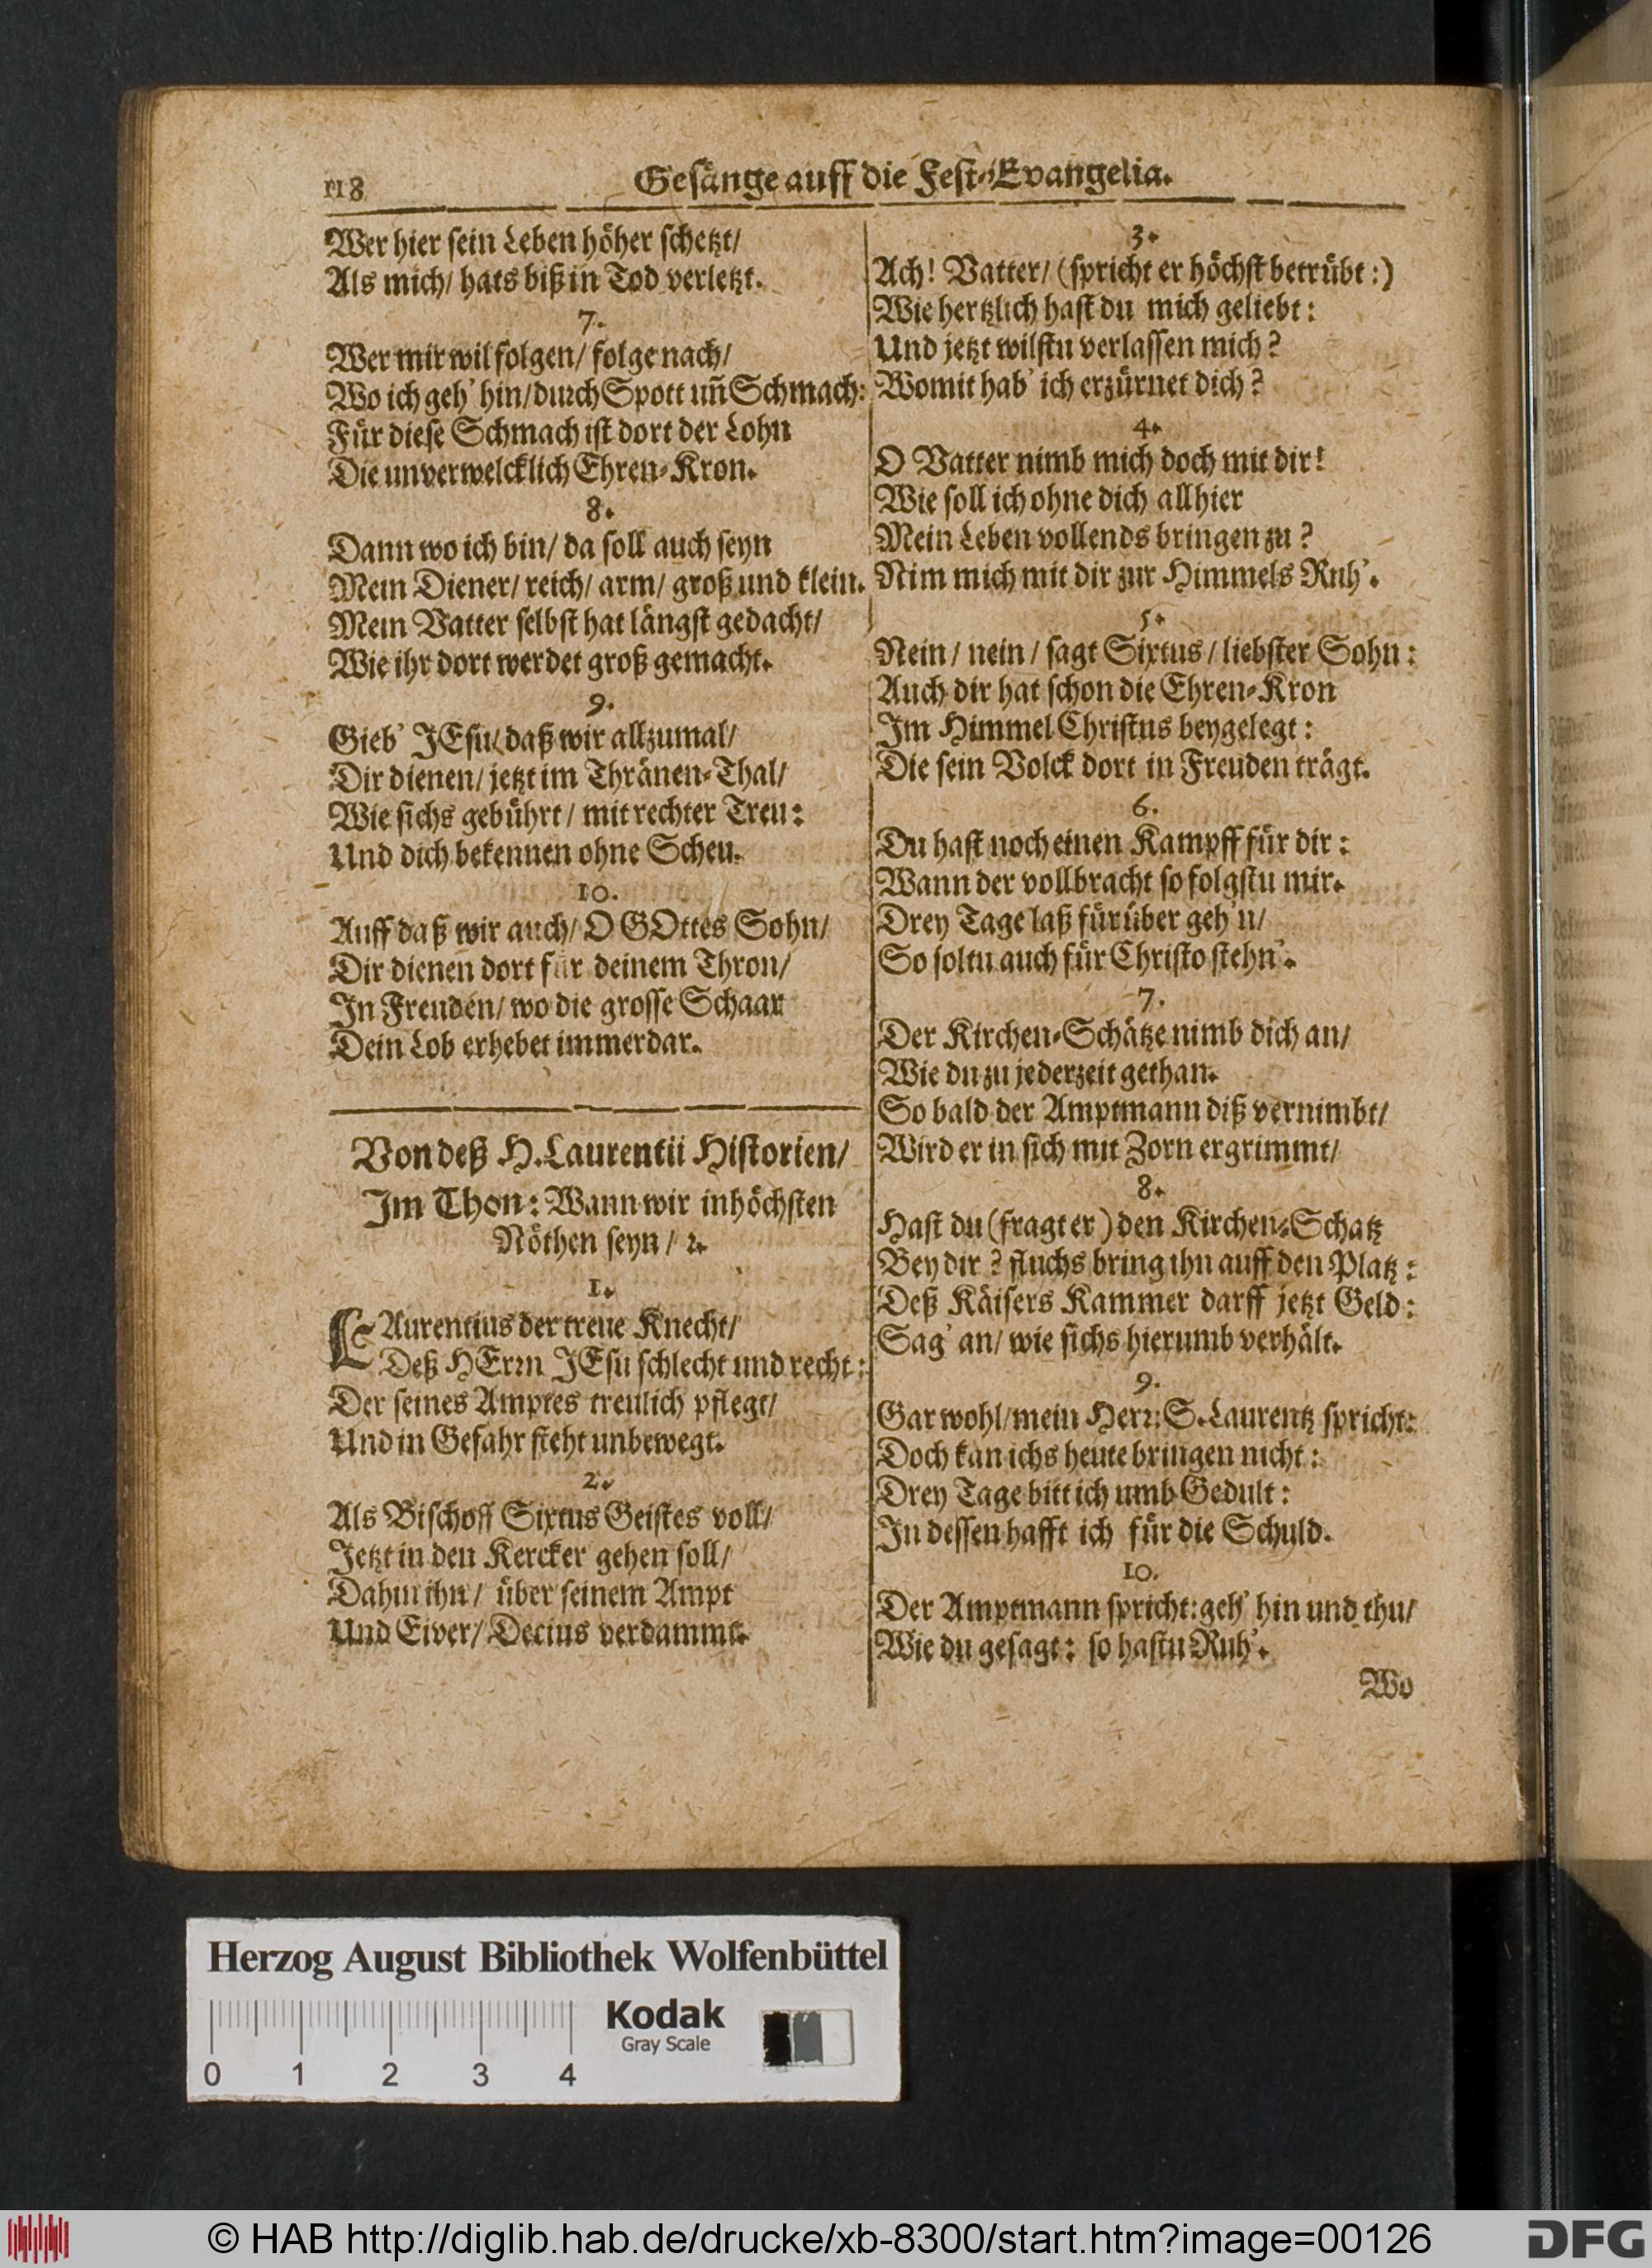 118
Gesänge auff die Fest-Evangelia.
Wer hier sein Leben höher schetzt/
Als mich/ hats biß in Tod verletzt.
7.
Wer mir wil folgen/ folge nach/
Wo ich geh' hin/ durch Spott uñ Schmach:
Für diese Schmach ist dort der Lohn
Die unverwelcklich Ehren-Kron.
8.
Dann wo ich bin/ da soll auch seyn
Mein Diener/ reich/ arm/ groß und klein.
Mein Vatter selbst hat längst gedacht/
Wie ihr dort werdet groß gemacht.
9.
Gieb' JEsu/ daß wir allzumal/
Dir dienen/ jetzt im Thränen-Thal/
Wie sichs gebührt/ mit rechter Treu:
Und dich bekennen ohne Scheu.
10.
Auff daß wir auch/ O GOttes Sohn/
Dir dienen dort für deinem Thron/
In Freuden/ wo die grosse Schaar
Dein Lob erhebet immerdar.
Von deß H. Laurentii Historien/
Im Thon: Wann wir in höchsten
Nöthen seyn/ ꝛc.
1.
LAurentius der treue Knecht/
Deß HErrn JEsu schlecht und recht:
Der seines Amptes treulich pflegt/
Und in Gefahr steht unbewegt.
2.
Als Bischoff Sixtus Geistes voll/
Jetzt in den Kercker gehen soll/
Dahin ihn/ über seinem Ampt
Und Eiver/ Decius verdammt.
3.
Ach! Vatter/ (spricht er höchst betrübt:)
Wie hertzlich hast du mich geliebt:
Und jetzt wilstu verlassen mich?
Womit hab' ich erzürnet dich?
4.
O Vatter nimb mich doch mit dir!
Wie soll ich ohne dich allhier
Mein Leben vollends bringen zu?
Nim mich mit dir zur Himmels Ruh'.
5.
Nein/ nein/ sagt Sixtus/ liebster Sohn:
Auch dir hat schon die Ehren-Kron
Im Himmel Christus beygelegt:
Die sein Volck dort in Freuden trägt.
6.
Du hast noch einen Kampff für dir:
Wann der vollbracht so folgstu mir.
Drey Tage laß fürüber geh'n/
So soltu auch für Christo stehn'.
7.
Der Kirchen-Schätze nimb dich an/
Wie du zu jederzeit gethan.
So bald der Amptmann diß vernimbt/
Wird er in sich mit Zorn ergrimmt/
8.
Hast du (fragt er) den Kirchen-Schatz
Bey dir? fluchs bring ihn auff den Platz:
Deß Käisers Kammer darff jetzt Geld:
Sag' an/ wie sichs hierumb verhält.
9.
Gar wohl/ mein Herr: S. Laurentz spricht:
Doch kan ichs heute bringen nicht:
Drey Tage bitt ich umb Gedult:
In dessen hafft ich für die Schuld.
10.
Der Amptmann spricht: geh' hin und thu/
Wie du gesagt: so hastu Ruh'.
Wo
Herzog August Bibliothek Wolfenbüttel
Kodak
Gray Scale
0 1 2 3 4
© HAB http://diglib.hab.de/drucke/xb-8300/start.htm?image=00126
DFG